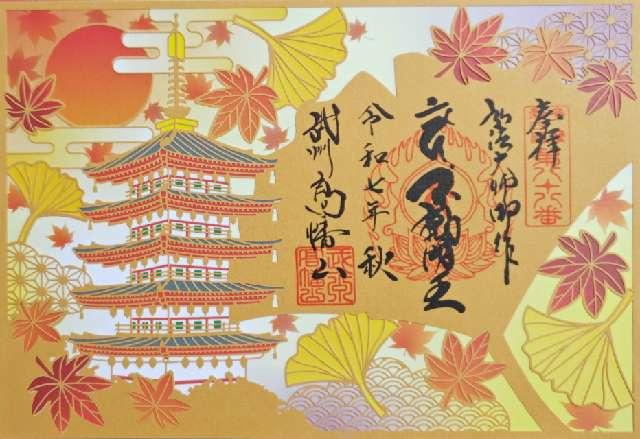 奉拝
八十八番
弘法大師御作
不動明王
令和七年秋
武州高幡山